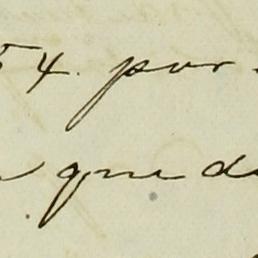 54. por
que de